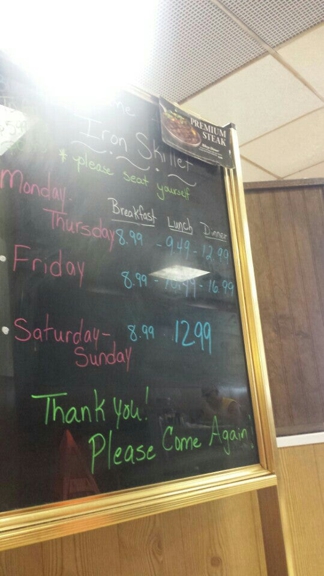 The
Iron Skillet
* please seat yourself
PREMIUM
STEAK
Breakfast Lunch Dinner
Monday-
Thursday 8.99 - 9.49 - 12.99
Friday
8.99 - 10.49 - 16.99
Saturday- 8.99 12.99
Sunday
Thank you!
Please Come Again!